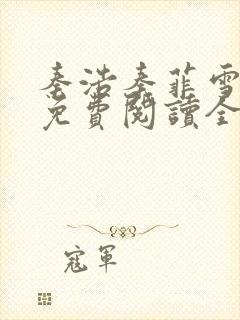 秦浩秦菲雪
免費閱讀全
寇軍